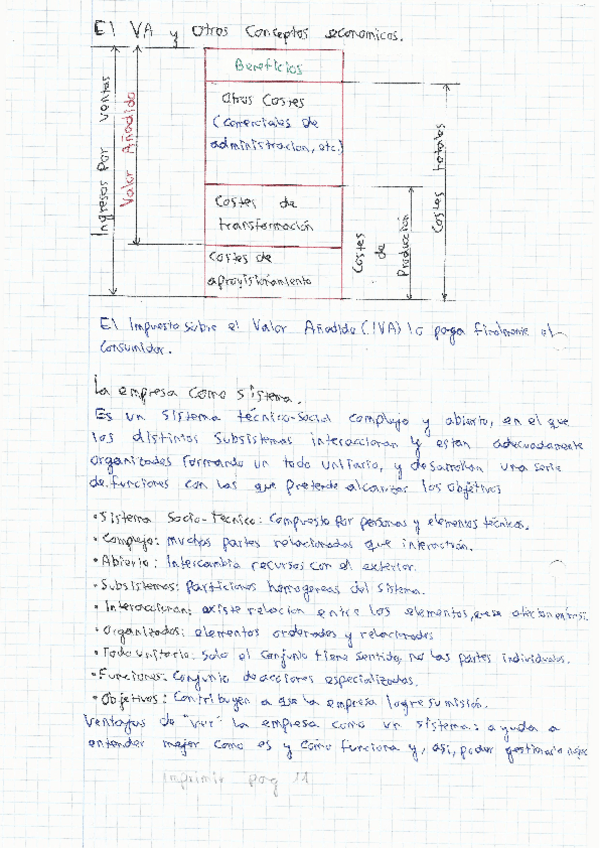 El VA y otros Conceptos economicos.
Beneficios
Otros Costes
(comerciales de
administracion, etc.)
Costes de
transformación
Costes de
aprovisionamiento
Ingresos Por ventas
Valor Añadido
Costes
de
Producción
Costes totales
El Impuesto sobre el Valor Añadido (IVA) lo paga finalmente el
Consumidor.
La empresa como sistema.
Es un sistema técnico-social complejo y abierto, en el que
los distintos subsistemas interaccionan y estan adecuadamente
organizados formando un todo unitario, y desarrollan una serie
de funciones con las que pretende alcanzar los objetivos
• Sistema Socio-tecnico: Compuesto por personas y elementos técnicos.
• Complejo: muchas partes relacionadas que interactúan.
• Abierto: Intercambia recursos con el exterior.
• Subsistemas: Particiones homogeneas del sistema.
• Interaccionan: existe relacion entre los elementos, que se afectan entre si.
• Organizados: elementos ordenados y relacionados
• Todo unitario: Solo el conjunto tiene sentido, no las partes individuales.
• Funciones: Conjunto de acciones especializadas.
• Objetivos: Contribuyen a que la empresa logre su misión.
Ventajas de "ver" la empresa como un sistema: ayuda a
entender mejor como es y como funciona y, asi, poder gestionarla mejor
Imprimir pag 11